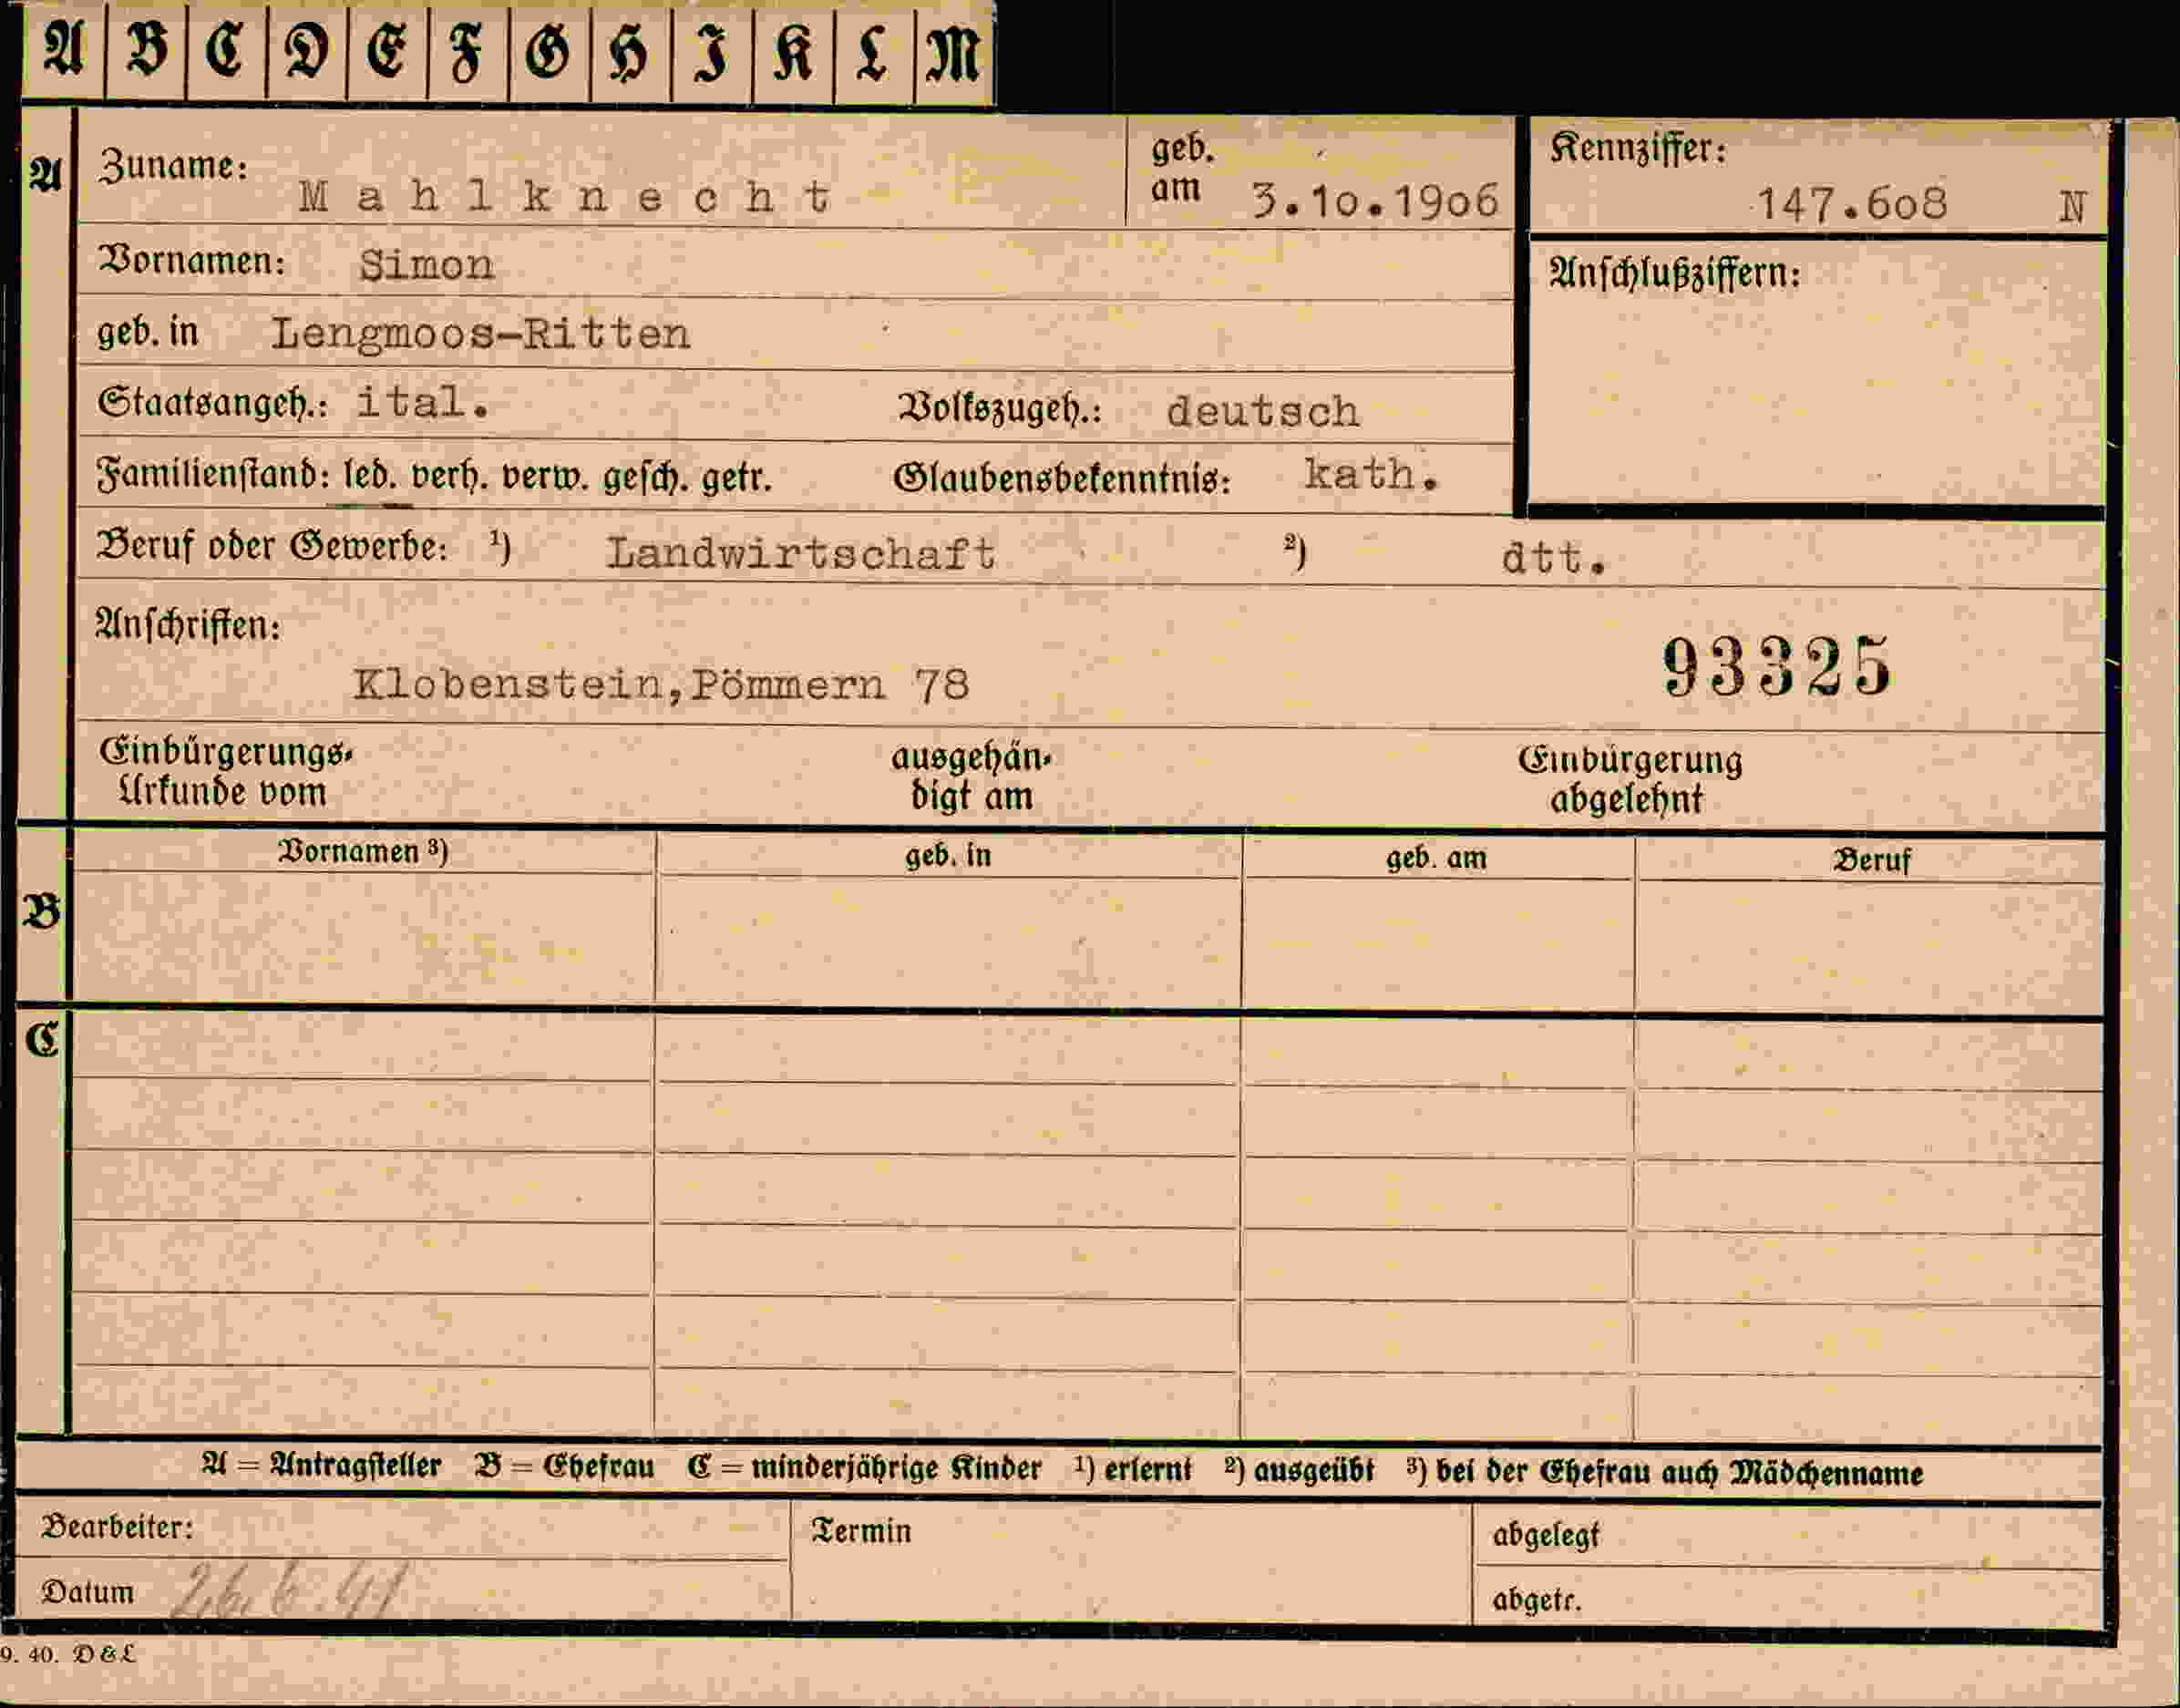 A B C D E F G H I K L M
A Zuname: Mahlknecht geb. am 3.10.1906 Kennziffer: 147.608 N
Vornamen: Simon Anschlußziffern:
geb. in Lengmoos-Ritten
Staatsangeh.: ital. Volkszugeh.: deutsch
Familienstand: led. verh. verw. gesch. getr. Glaubensbekenntnis: kath.
Beruf oder Gewerbe: ¹) Landwirtschaft ²) dtt.
Anschriften:
93325
Klobenstein,Pömmern 78
Einbürgerungs- ausgehän- Einbürgerung
Urkunde vom digt am abgelehnt
Vornamen ³) geb. in geb. am Beruf
B
C
A = Antragsteller B = Ehefrau C = minderjährige Kinder ¹) erlernt ²) ausgeübt ³) bei der Ehefrau auch Mädchenname
Bearbeiter: Termin abgelegt
Datum 26.6.41 abgetr.
9. 40. D & L